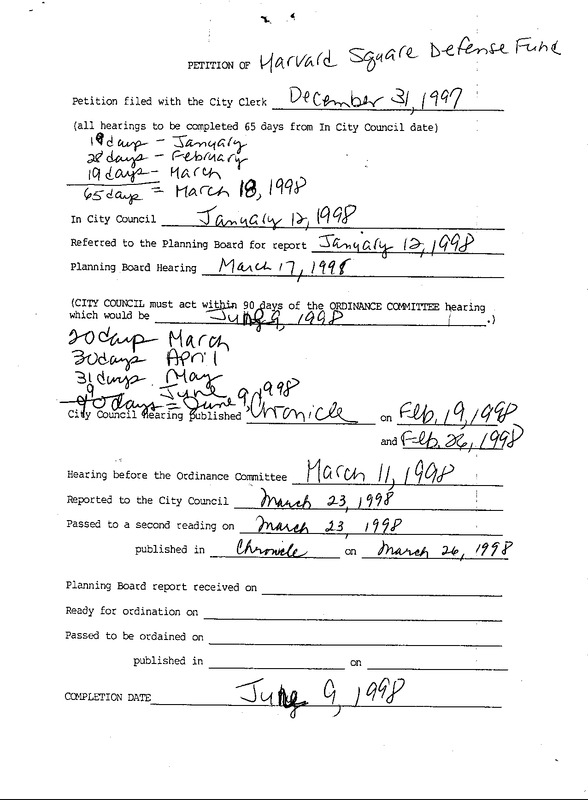 PETITION OF Harvard Square Defense Fund
Petition filed with the City Clerk December 31, 1997
(all hearings to be completed 65 days from In City Council date)
19 days - January
28 days - February
19 days - March
65 days = March 18, 1998
In City Council January 12, 1998
Referred to the Planning Board for report January 12, 1998
Planning Board Hearing March 17, 1998
(CITY COUNCIL must act within 90 days of the ORDINANCE COMMITTEE hearing
which would be June 9, 1998 .)
20 days March
30 days April
31 days May
9 June
90 days = June 9, 1998
City Council Hearing published Chronicle on Feb. 19, 1998
and Feb. 26, 1998
Hearing before the Ordinance Committee March 11, 1998
Reported to the City Council March 23, 1998
Passed to a second reading on March 23, 1998
published in Chronicle on March 26, 1998
Planning Board report received on
Ready for ordination on
Passed to be ordained on
published in on
COMPLETION DATE June 9, 1998